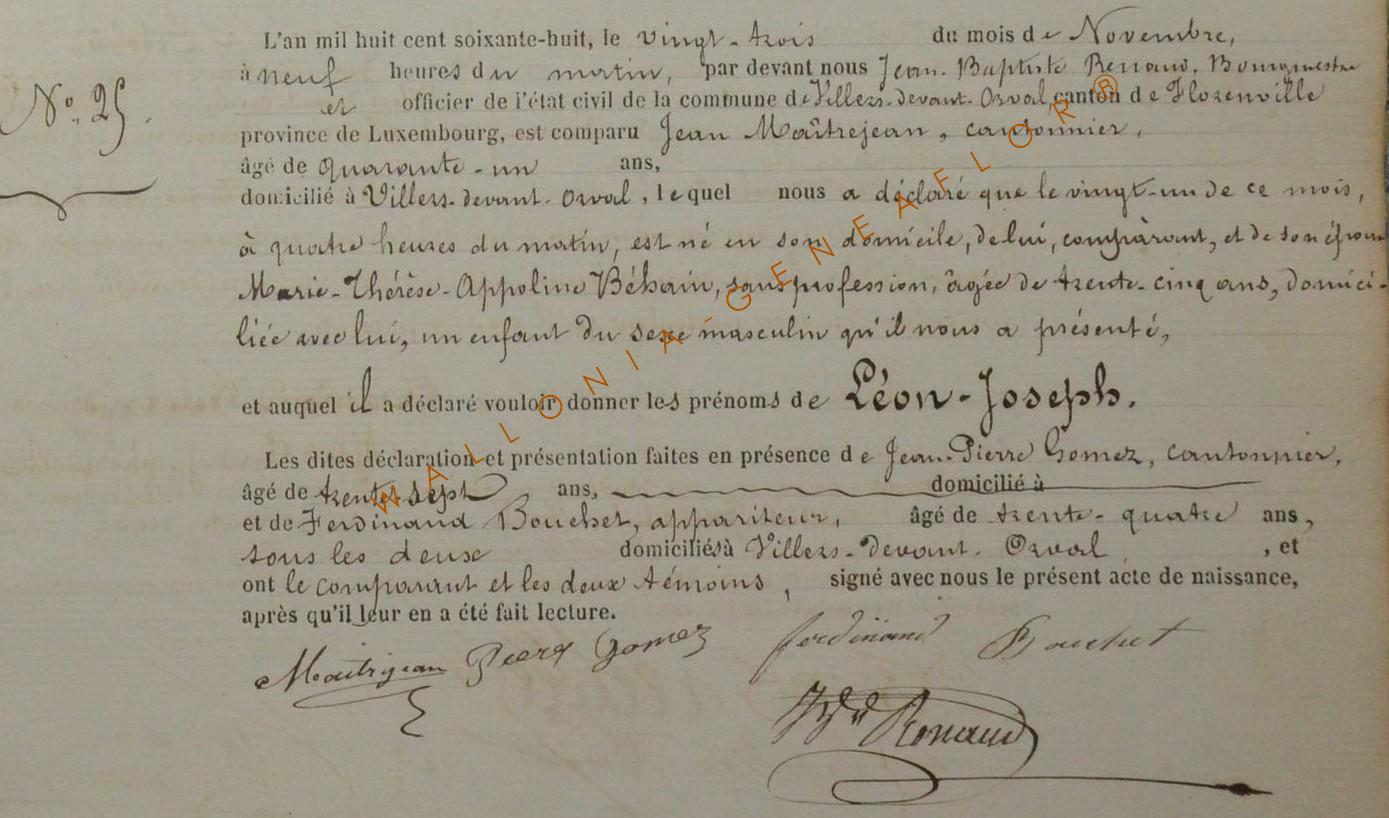 L'an mil huit cent soixante-huit, le vingt-trois du mois de Novembre,
à neuf heures du matin, par devant nous Jean-Baptiste Renaud, Bourgmestre
No. 25.
et officier de l'état civil de la commune de Villers-devant-Orval, canton de Florenville
province de Luxembourg, est comparu Jean Maîtrejean, cantonnier,
âgé de quarante-un ans,
domicilié à Villers-devant-Orval, lequel nous a déclaré que le vingt-un de ce mois,
à quatre heures du matin, est né en son domicile, de lui, comparant, et de son épouse
Marie-Thérèse-Appoline Béhain, sans profession, âgée de trente-cinq ans, domici-
liée avec lui, un enfant du sexe masculin qu'il nous a présenté,
et auquel il a déclaré vouloir donner les prénoms de Léon-Joseph.
Les dites déclaration et présentation faites en présence de Jean-Pierre Gomez, cantonnier,
âgé de trente-sept ans, domicilié à
et de Ferdinand Bouchet, appariteur, âgé de trente-quatre ans,
tous les deux domiciliés à Villers-devant-Orval, et
ont le comparant et les deux témoins, signé avec nous le présent acte de naissance,
après qu'il leur en a été fait lecture.
Maitrejean Pierre Gomez ferdinand Bouchet
Renaud
WALLONIA GENEAFLOR®